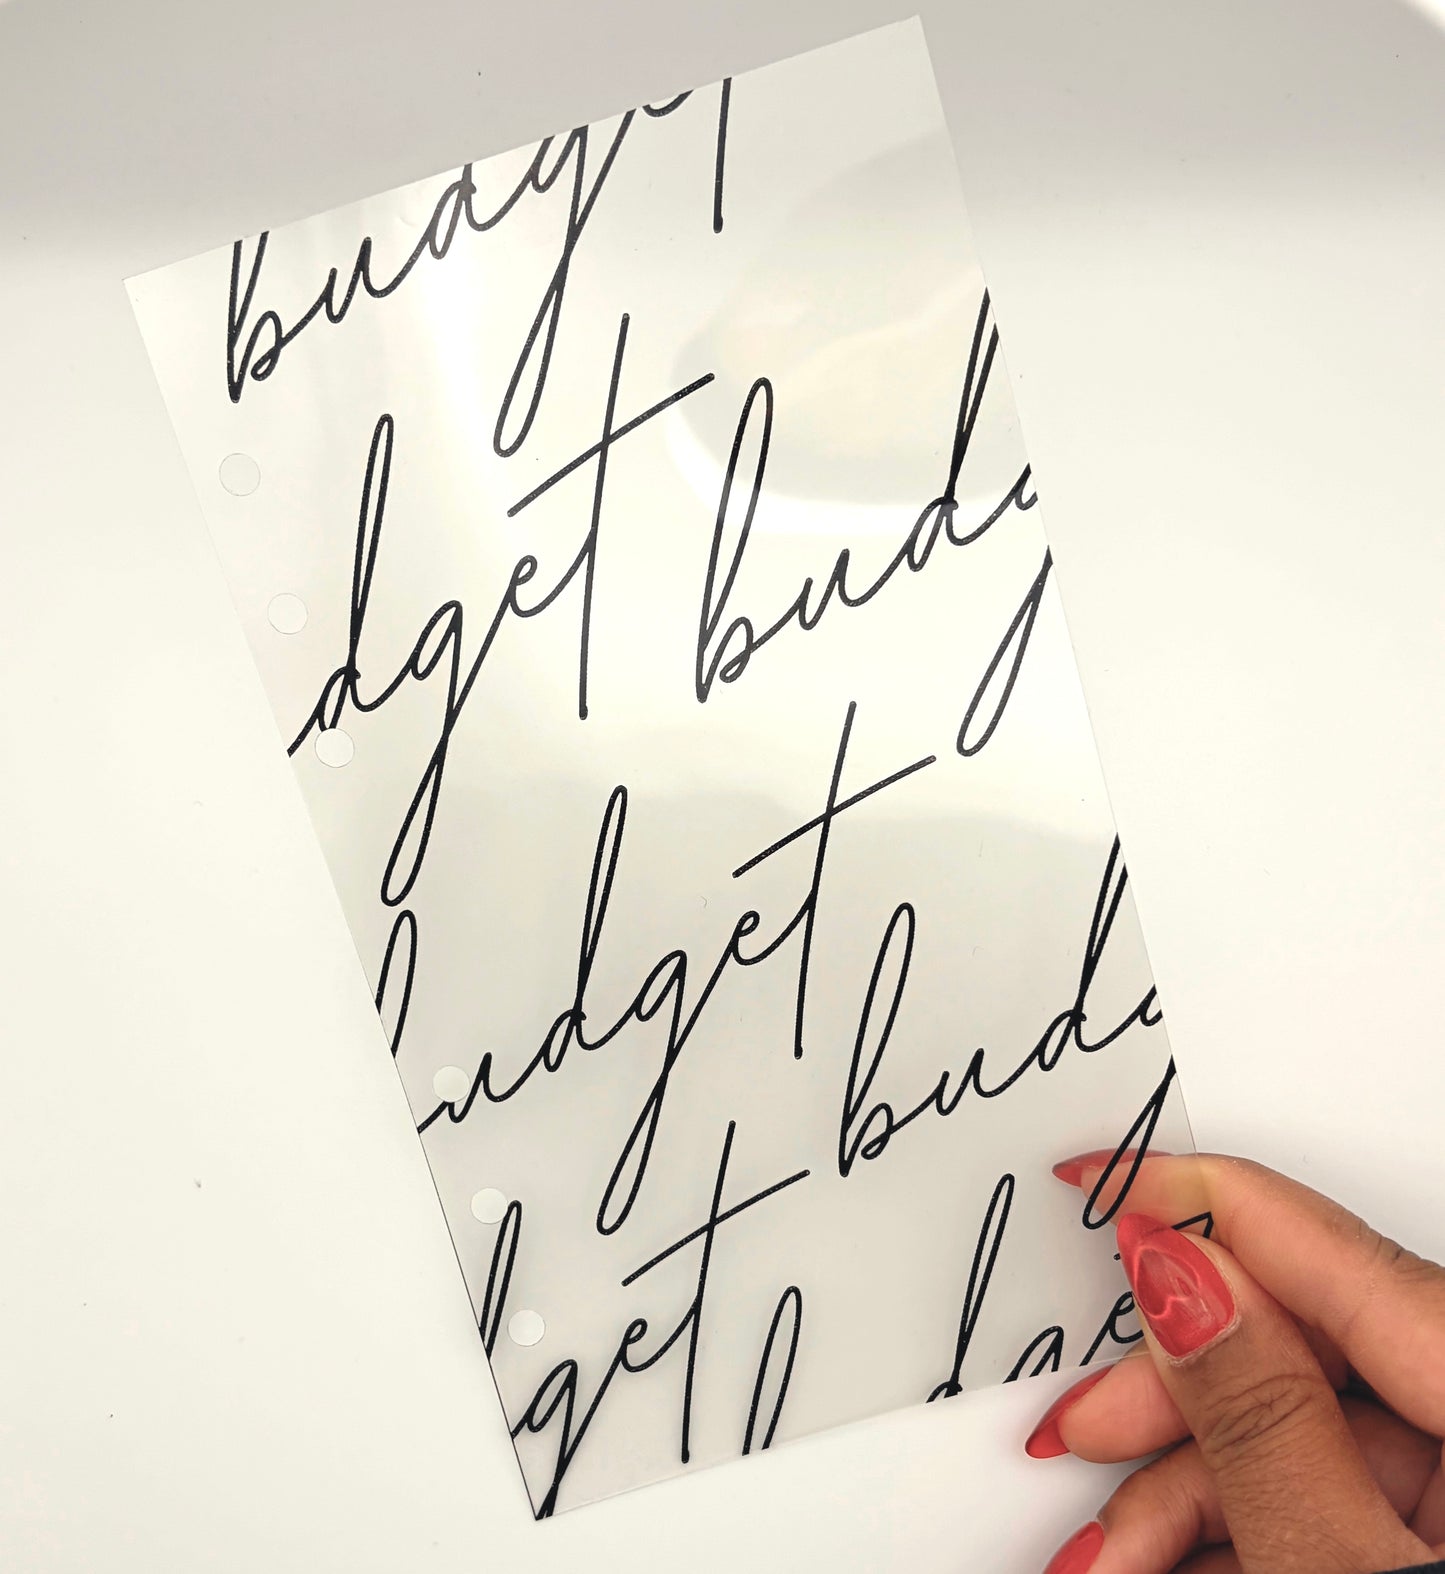 budget
dget budg
budget budg
dget b dget